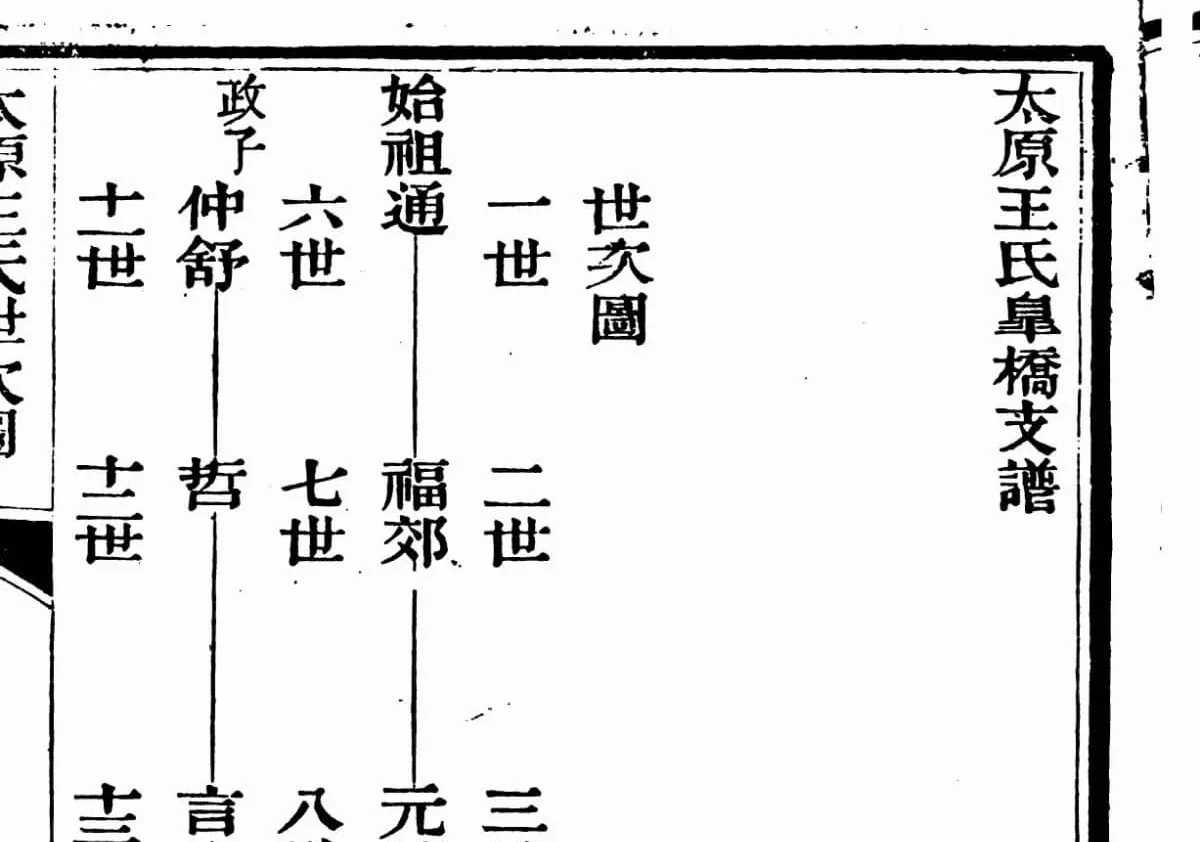 太原王氏皐橋支譜
世次圖
一世 二世 三
始祖通 福郊 元
六世 七世 八
政子 仲舒 哲 言
十一世 十二世 十三
太原王氏世次圖